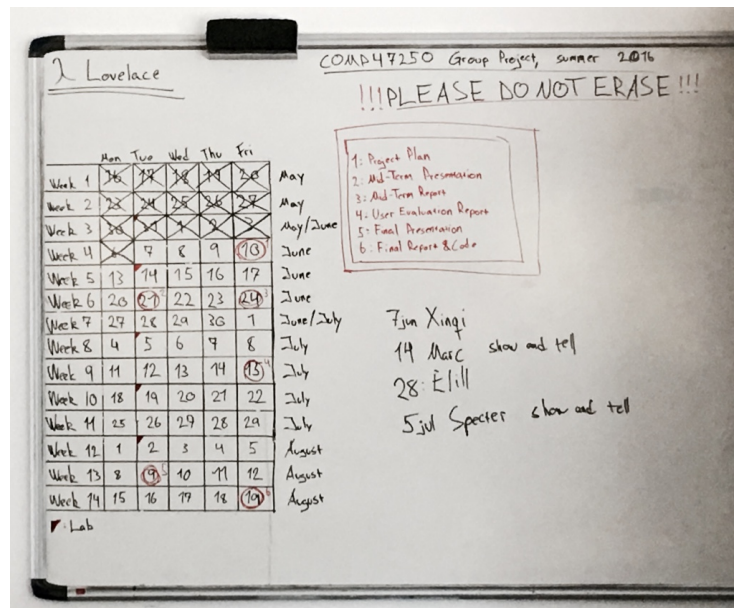 λ Lovelace
COMP47250 Group Project, summer 2016
!!!PLEASE DO NOT ERASE!!!
Mon Tue Wed Thu Fri
Week 1 16 17 18 19 20 May
Week 2 23 24 25 26 27 May
Week 3 30 31 1 2 3 May/June
Week 4 6 7 8 9 10 1 June
Week 5 13 14 15 16 17 June
Week 6 20 21 2 22 23 24 3 June
Week 7 27 28 29 30 1 June/July
Week 8 4 5 6 7 8 July
Week 9 11 12 13 14 15 4 July
Week 10 18 19 20 21 22 July
Week 11 25 26 27 28 29 July
Week 12 1 2 3 4 5 August
Week 13 8 9 5 10 11 12 August
Week 14 15 16 17 18 19 6 August
: Lab
1: Project Plan
2: Mid-Term Presentation
3: Mid-Term Report
4: User Evaluation Report
5: Final Presentation
6: Final Report & Code
7jun Xinqi
14 Marc show and tell
28: Elill
5jul Specter show and tell